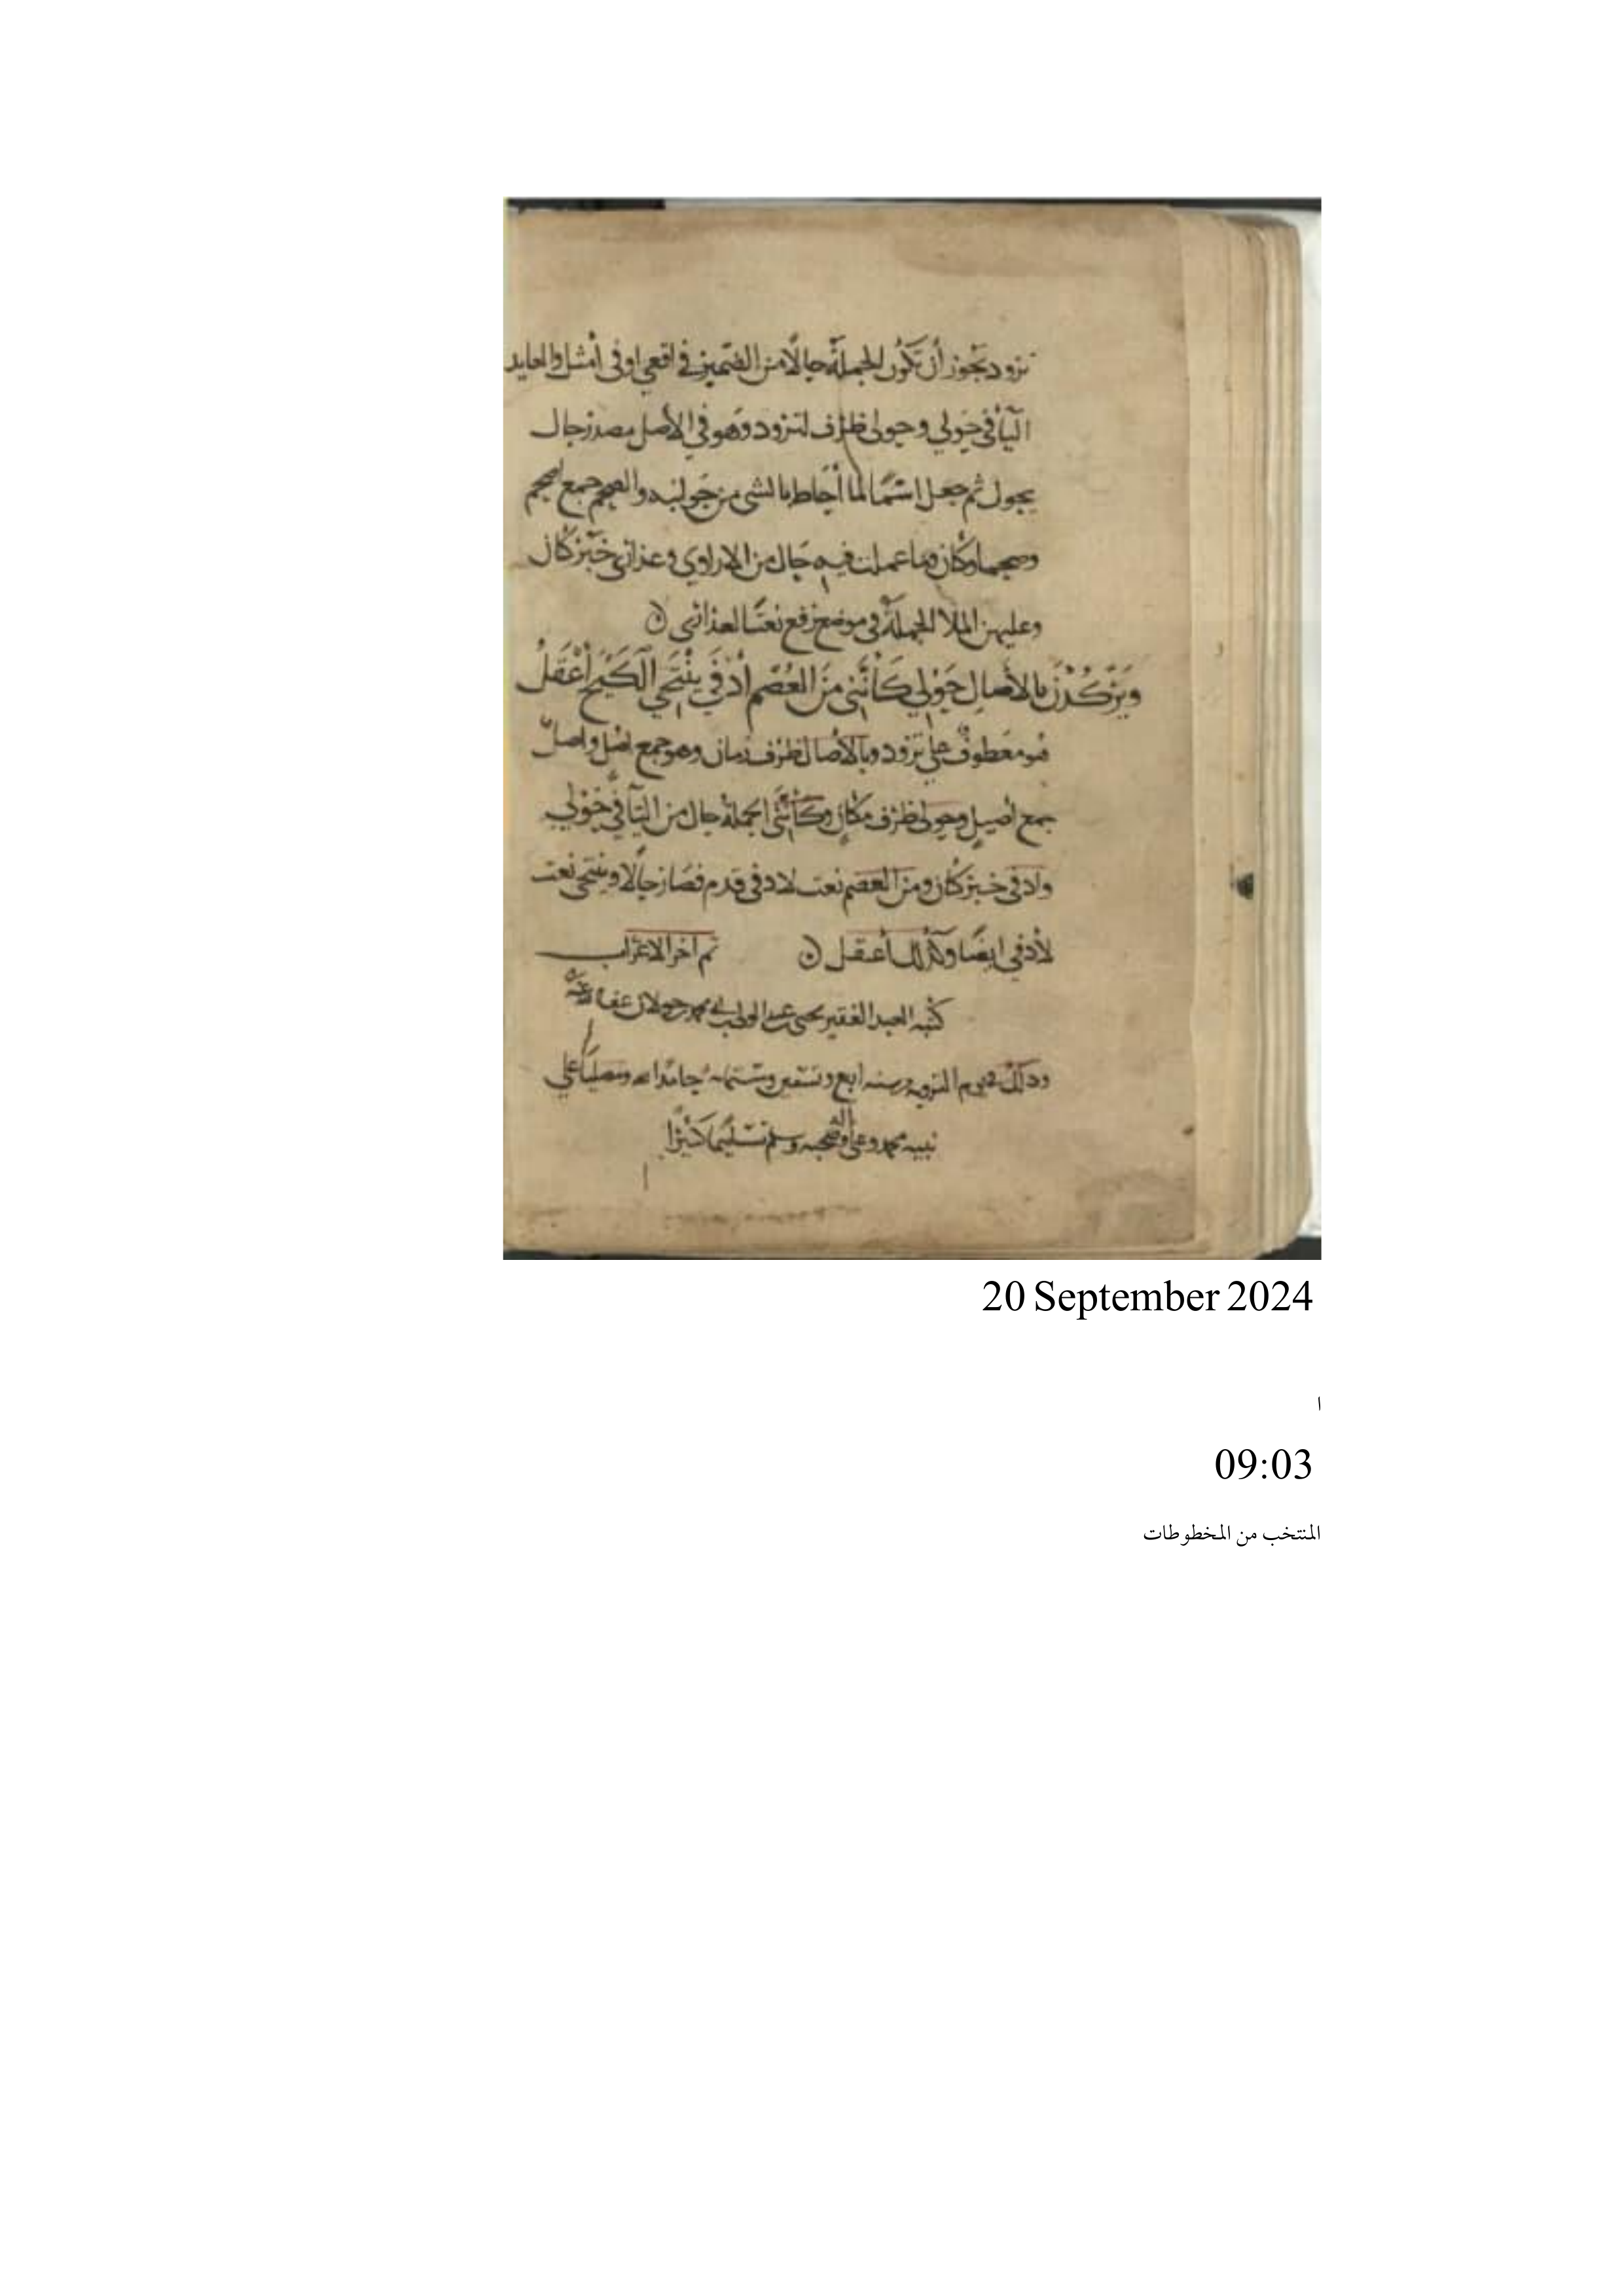 ترود يجوز أن تكون الجملة حالًا من الضمير في اقعي او في أمثل والعايد
اليآ في حولي وحولي ظرف لترود وهو في الأصل مصدر حال
يحول ثم جعل اسمًا لما أحاط بالشي من جوانبه والصحم جمع اصحم
وصحما وكان وما عملت فيه حال من الاراوي وعذارى خبر كان
وعليهن الملا الجملة في موضع رفع نعتًا لعذارى ن
وَيَرْكُدْنَ بالأصالِ حَوْلي كَأنَّني مِنَ العُصْمِ أدْفَى يَنْتَحِي الكَيْحَ أعْقَلُ
هو معطوف على ترود وبالأصال ظرف زمان وهو جمع اصل واصل
جمع أصيل وحولي ظرف مكان وكأنني الجملة حال من اليآ في حولي
وادفى خبر كان ومن العصم نعت لادفى قدم فصار حالًا وينتحي نعت
لأدفى ايضًا وكذلك أعقل ن تم آخر الاعراب
كتبه العبد الفقير يحيى بن عبد الوهاب بن محمد عفا الله عنه
وذلك في يوم التروية سنه اربع وستمايه حامدًا لله ومصليًا على
نبيه محمد وعلى آله وصحبه وسلم تسليمًا كثيرًا
20 September 2024
ا
09:03
المنتخب من المخطوطات